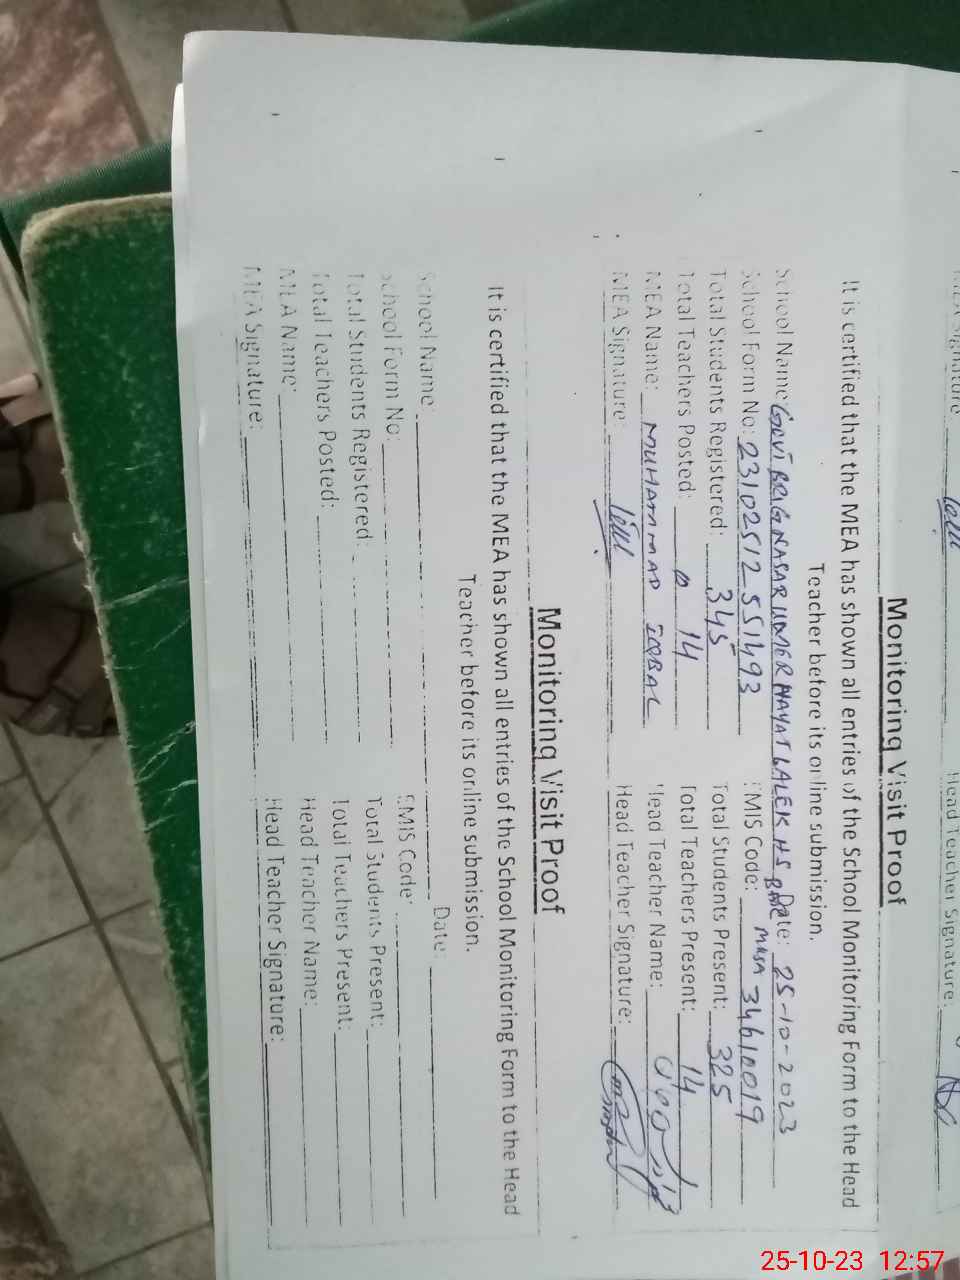 MEA Signature
Head Teacher Signature:
Monitoring Visit Proof
It is certified that the MEA has shown all entries of the School Monitoring Form to the Head
Teacher before its online submission.
School Name: GOVT BRIG NASAR UMER HAYAT LALEK HS Date: 25-10-2023
School Form No: 23102512551493 EMIS Code: 34610019
Total Students Registered: 345 Total Students Present: 325
Total Teachers Posted: 14 Total Teachers Present: 14
MEA Name: MUHAMMAD IQBAL Head Teacher Name:
MEA Signature: Head Teacher Signature:
Monitoring Visit Proof
It is certified that the MEA has shown all entries of the School Monitoring Form to the Head
Teacher before its online submission.
School Name: Date:
School Form No: EMIS Code:
Total Students Registered: Total Students Present:
Total Teachers Posted: Total Teachers Present:
MEA Name: Head Teacher Name:
MEA Signature: Head Teacher Signature:
25-10-23 12:57